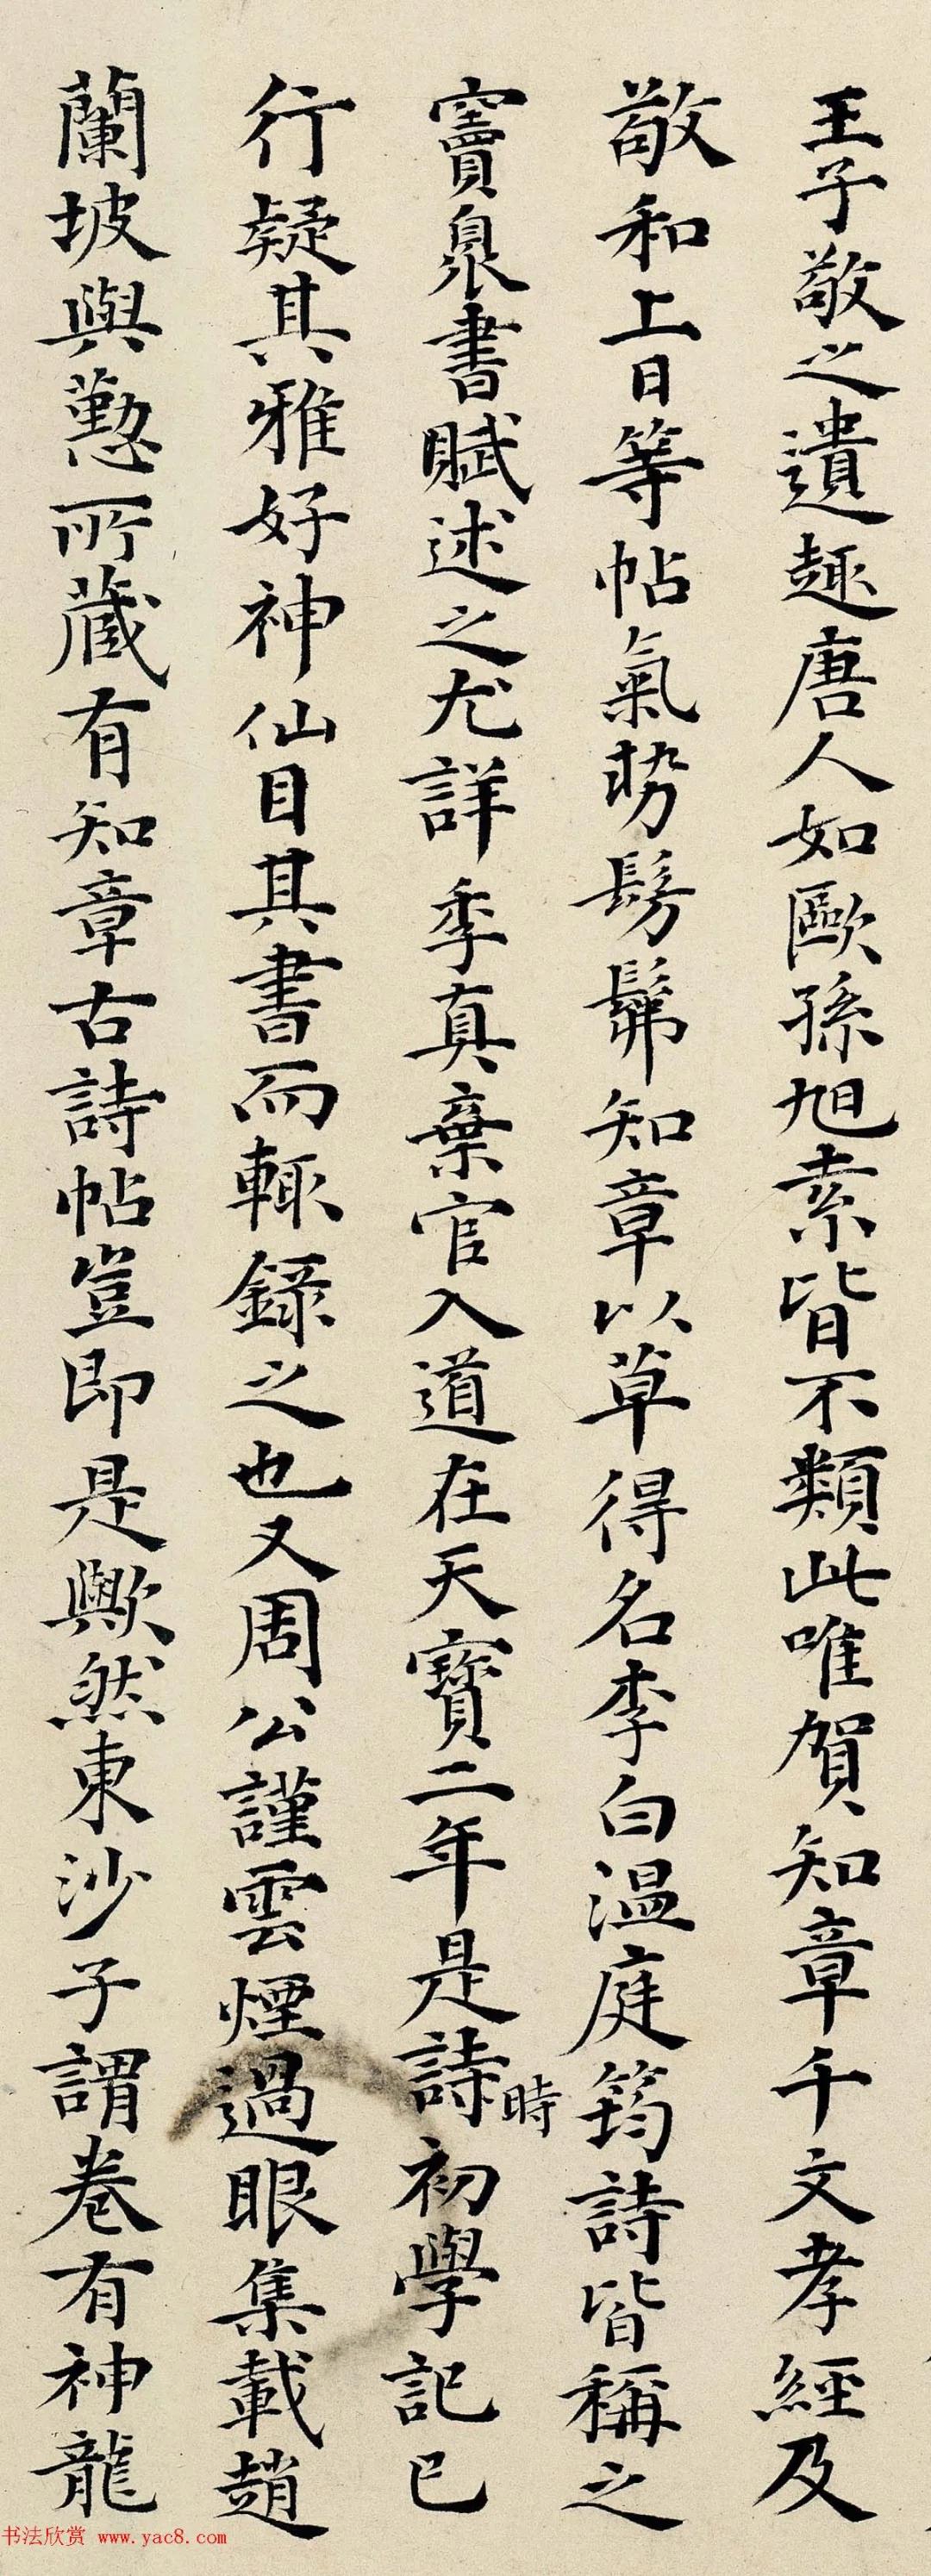 王子敬之遺趣唐人如歐孫旭素皆不類此唯賀知章千文孝經及
敬和上日等帖氣勢髣髴知章以草得名李白温庭筠詩皆稱之
竇臮書賦述之尤詳季真棄官入道在天寶二年是詩時初學記已
行疑其雅好神仙目其書而輒錄之也又周公謹雲煙過眼集載趙
蘭坡與懃所藏有知章古詩帖豈即是歟然東沙子謂卷有神龍
书法欣赏 www.yac8.com